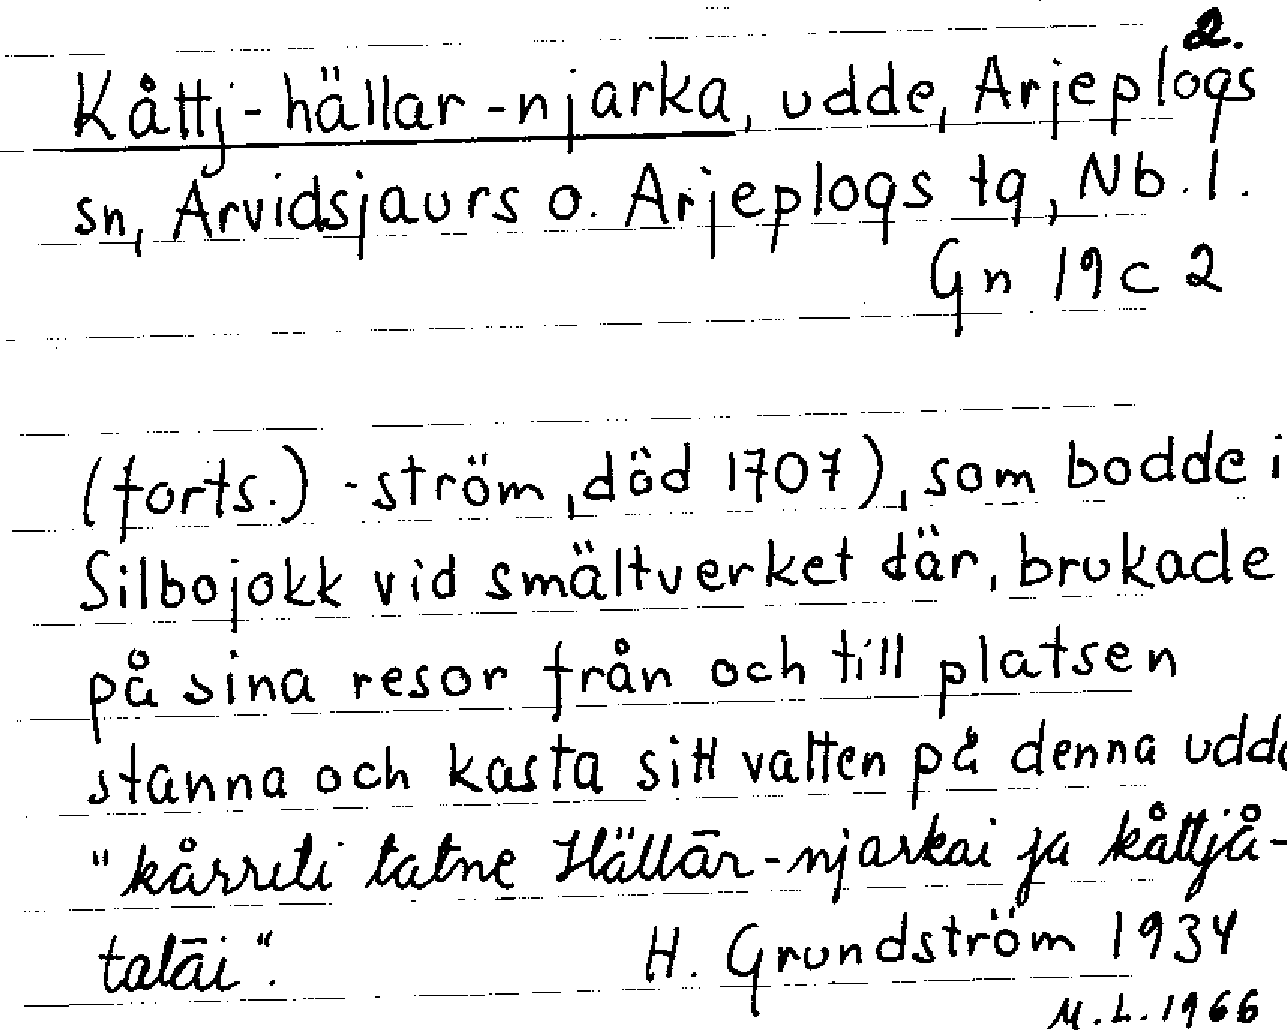 2.
Kåttj-hällar-njarka, udde, Arjeplogs
sn, Arvidsjaurs o. Arjeplogs tg, Nb. l.
Gn 19 c 2
(forts.) -ström, död 1707), som bodde i
Silbojokk vid smältverket där, brukade
på sina resor från och till platsen
stanna och kasta sitt vatten på denna udde
"kårriti tatne Hällār-njarkai ja kåttjå-
talāi".
H. Grundström 1934
M.L. 1966